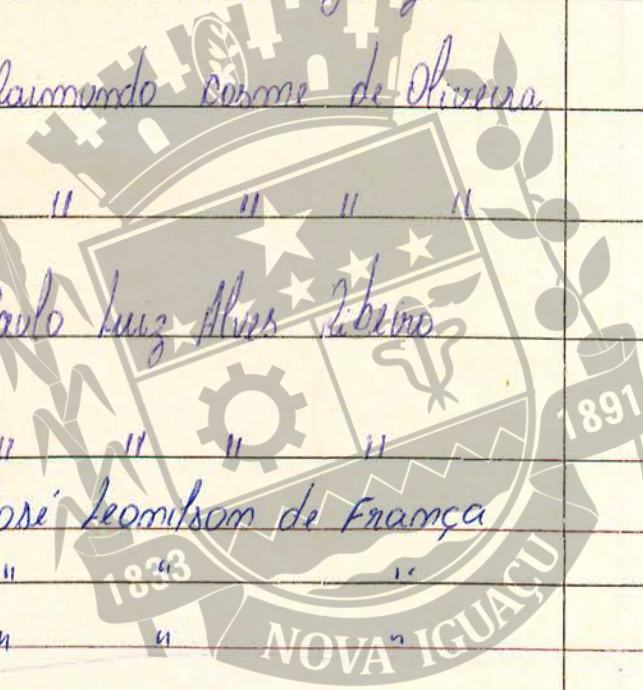 aimundo Cosme de Oliveira
" " " "
aulo Luiz Alves Ribeiro
" " " "
osé Leonilson de França
" " "
" " "
1833
1891
NOVA IGUAÇU